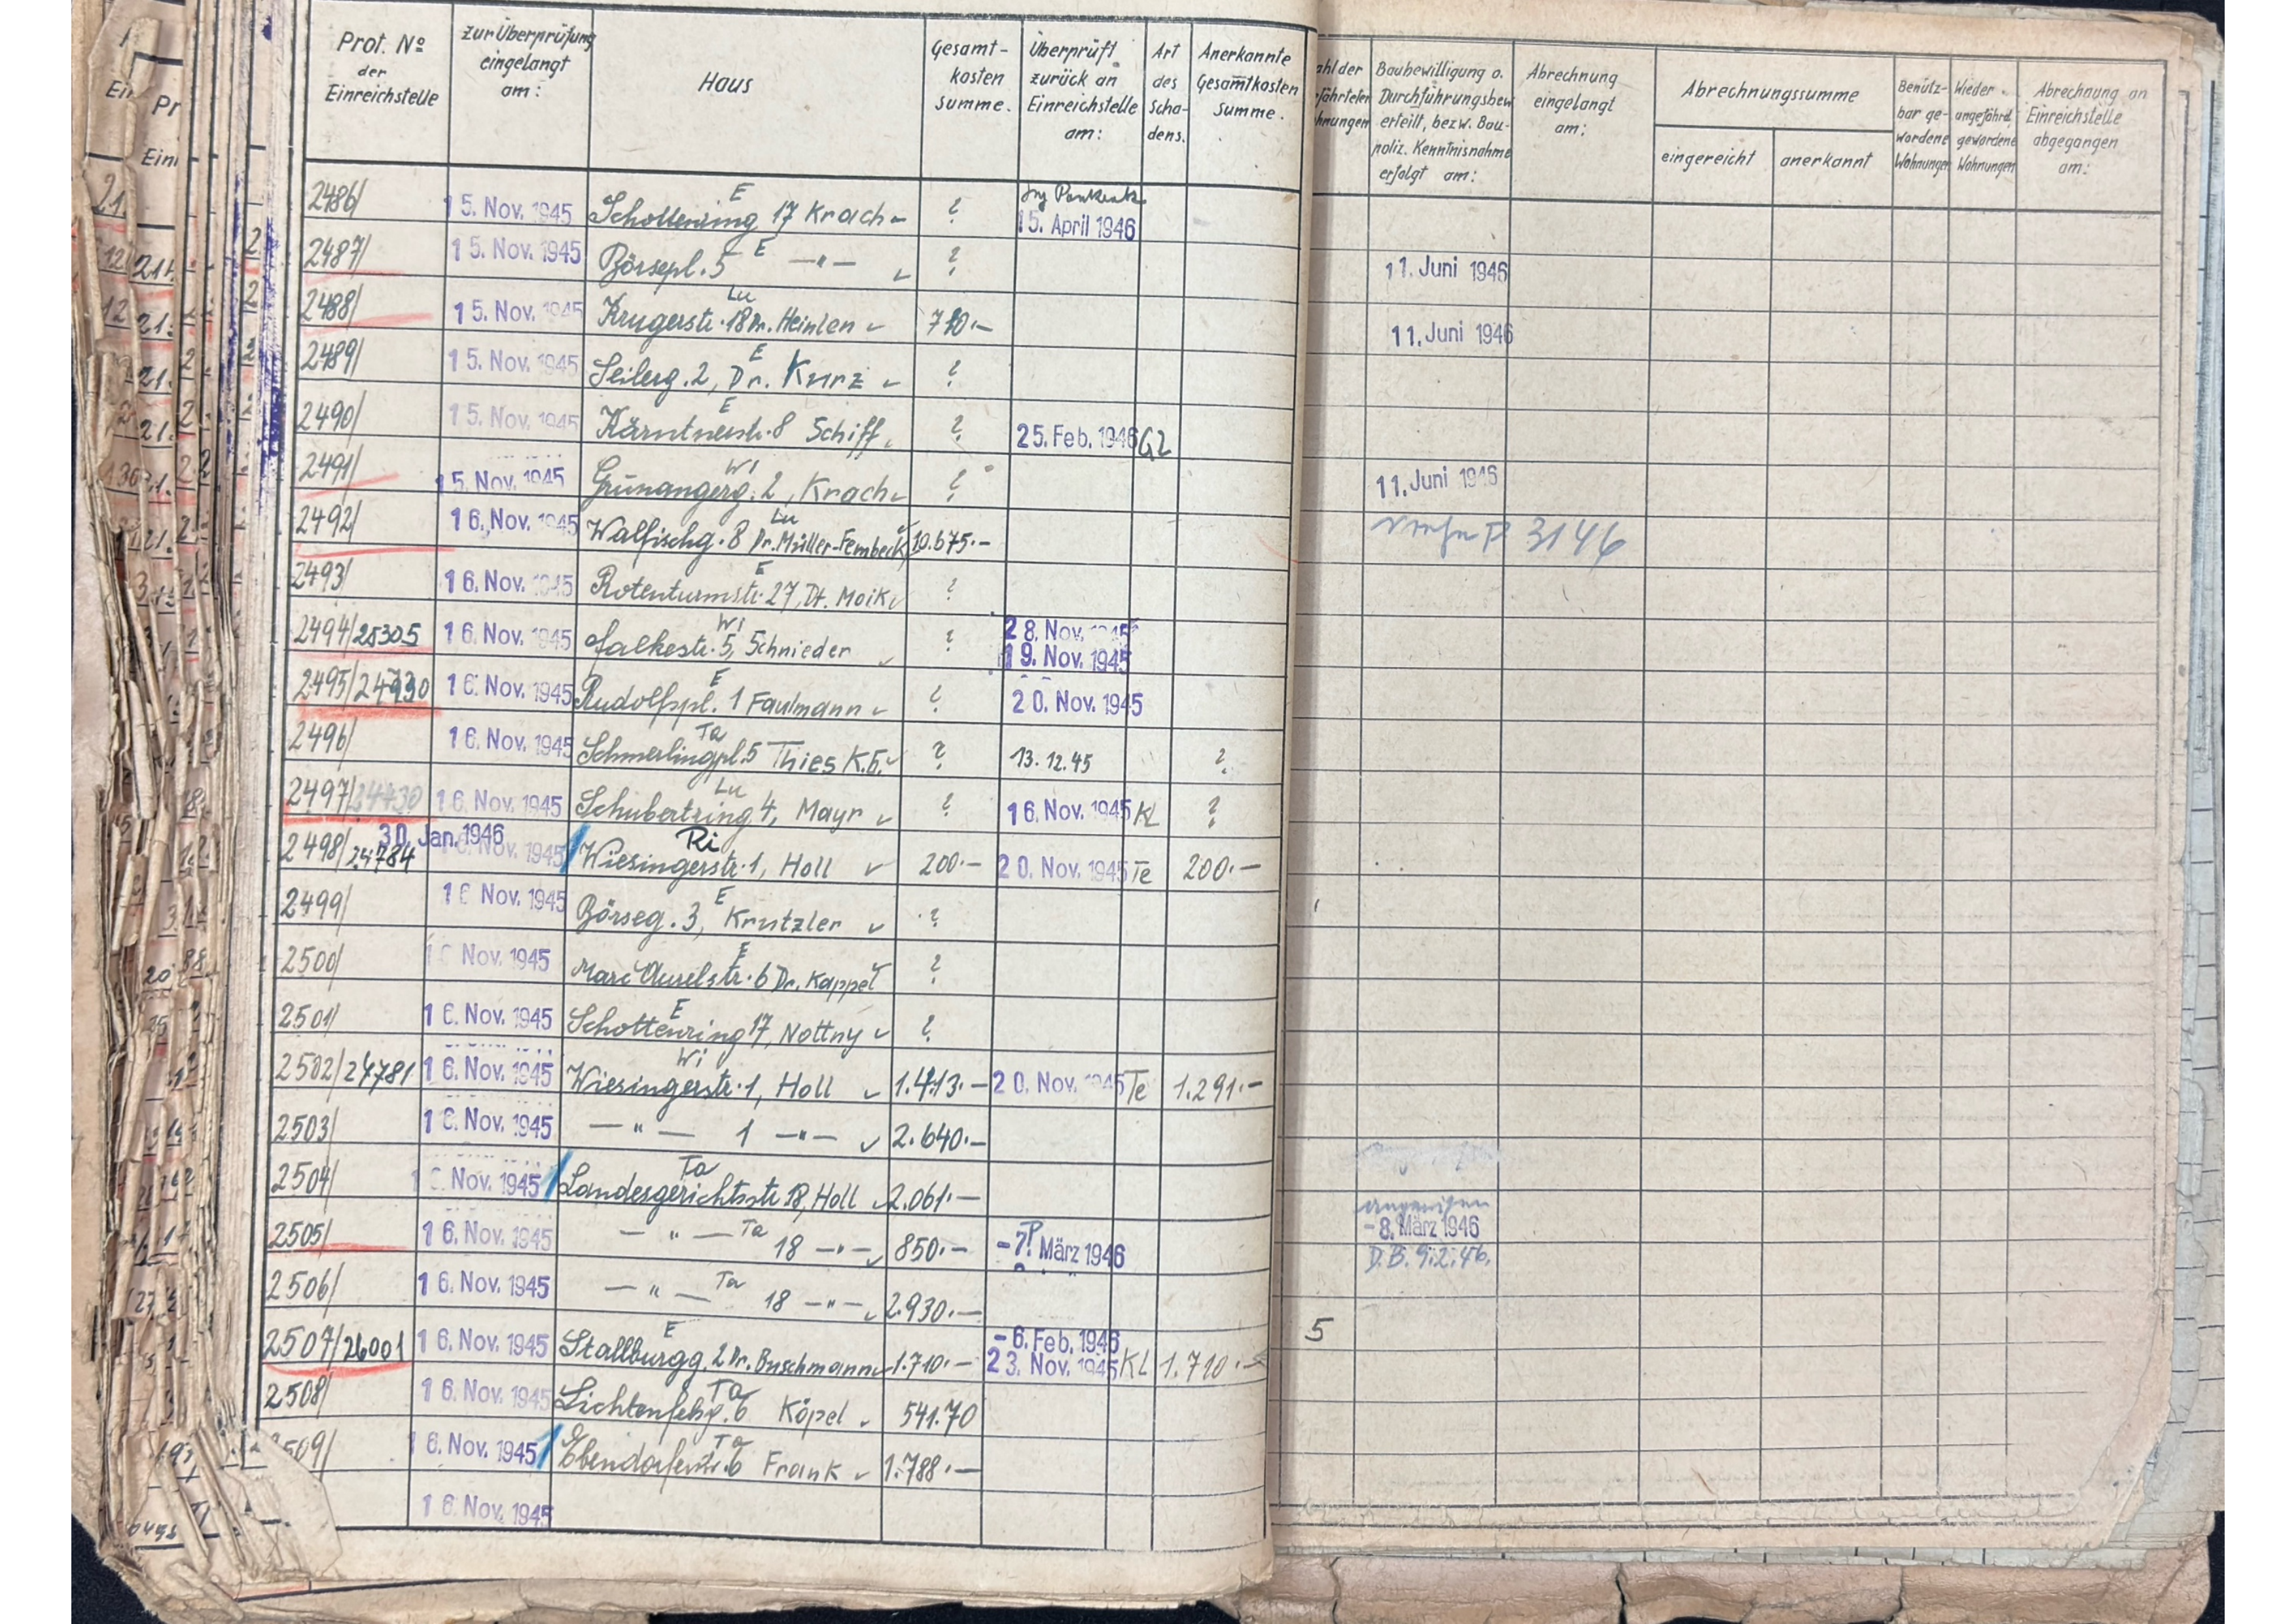 Prot. No der Einreichstelle | zur Überprüfung eingelangt am: | Haus | Gesamt-kosten summe. | Überprüft zurück an Einreichstelle am: | Art des Scha-dens. | Anerkannte Gesamtkosten Summe. | Baubewilligung o. Durchführungsbew. erteilt, bezw. Bau-poliz. Kenntnisnahme erfolgt am: | Abrechnung eingelangt am: | Abrechnungssumme eingereicht | anerkannt | Benütz-bar ge-wordene Wohnungen | Wieder angefährd. gewordene Wohnungen | Abrechnung an Einreichstelle abgegangen am:
2486/ | 15. Nov. 1945 | E Schottenring 17 Krach | ? | 15. April 1946
2487/ | 15. Nov. 1945 | Börsepl. 5 E —"— | ? | 11. Juni 1946
2488/ | 15. Nov. 1945 | Lu Krugerstr. 18 Dr. Heinlen | 710.— | 11. Juni 1946
2489/ | 15. Nov. 1945 | E Seilerg. 2, Dr. Kurz | ?
2490/ | 15. Nov. 1945 | E Kärntnerstr. 8 Schiff | ? | 25. Feb. 1946 | GL
2491/ | 15. Nov. 1945 | Wi Grünangerg. 2, Krach | ? | 11. Juni 1946
2492/ | 16. Nov. 1945 | Lu Walfischg. 8 Dr. Müller-Fembeck | 10.675.— | 3146
2493/ | 16. Nov. 1945 | E Rotenturmstr. 27, Dr. Moik | ?
2494/25305 | 16. Nov. 1945 | Wi Falkestr. 5, Schnieder | ? | 28. Nov. 1945 19. Nov. 1945
2495/24930 | 16. Nov. 1945 | E Rudolfspl. 1 Faulmann | ? | 20. Nov. 1945
2496/ | 16. Nov. 1945 | Ta Schmerlingpl. 5 Thies K.G. | ? | 13.12.45 | ?
2497/24430 | 16. Nov. 1945 | Lu Schubertring 4, Mayr | ? | 16. Nov. 1945 | KL | ?
2498/24784 | 30. Jan. 1946 16. Nov. 1945 | Ri Wiesingerstr. 1, Holl | 200.— | 20. Nov. 1945 | Te | 200.—
2499/ | 16 Nov. 1945 | E Börseg. 3, Krutzler | ?
2500/ | 16 Nov. 1945 | E Marc Aurelstr. 6 Dr. Kappel | ?
2501/ | 16. Nov. 1945 | E Schottenring 17, Nottny | ?
2502/24781 | 16. Nov. 1945 | Wi Wiesingerstr. 1, Holl | 1.413.— | 20. Nov. 1945 | Te | 1.291.—
2503/ | 16. Nov. 1945 | —"— 1 —"— | 2.640.—
2504/ | 16. Nov. 1945 | Ta Landesgerichtsstr. 18, Holl | 2.061.—
2505/ | 16. Nov. 1945 | —"— Ta 18 —"— | 850.— | -7. März 1946 | -8. März 1946 D.B. 9.2.46.
2506/ | 16. Nov. 1945 | —"— Ta 18 —"— | 2.930.—
2507/26001 | 16. Nov. 1945 | E Stallburgg. 2 Dr. Buschmann | 1.710.— | -6. Feb. 1946 23. Nov. 1945 | KL | 1.710.— | 5
2508/ | 16. Nov. 1945 | Ta Lichtenfelsg. 6 Köpel | 541.70
2509/ | 16. Nov. 1945 | Ta Ebendorferstr. 6 Frank | 1.788.—
16. Nov. 1945